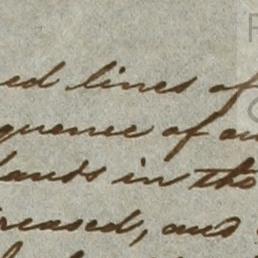 ed lines of
quence of au
lands in the
creased, and